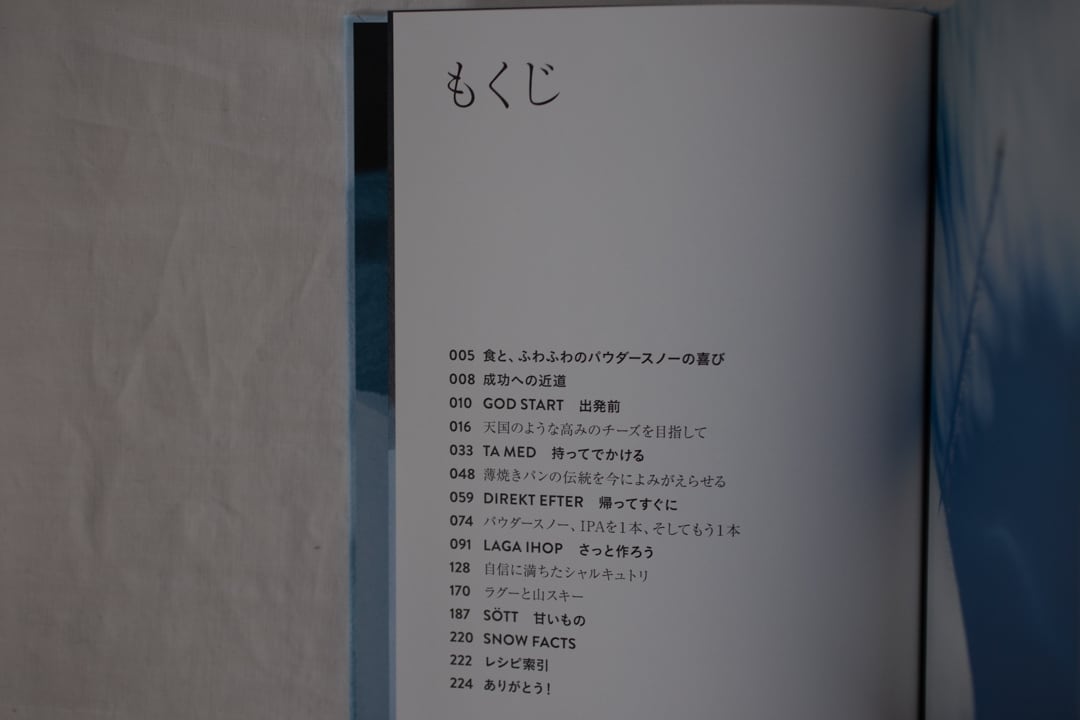 もくじ
005 食と、ふわふわのパウダースノーの喜び
008 成功への近道
010 GOD START 出発前
016 天国のような高みのチーズを目指して
033 TA MED 持ってでかける
048 薄焼きパンの伝統を今によみがえらせる
059 DIREKT EFTER 帰ってすぐに
074 パウダースノー、IPAを1本、そしてもう1本
091 LAGA IHOP さっと作ろう
128 自信に満ちたシャルキュトリ
170 ラグーと山スキー
187 SÖTT 甘いもの
220 SNOW FACTS
222 レシピ索引
224 ありがとう!